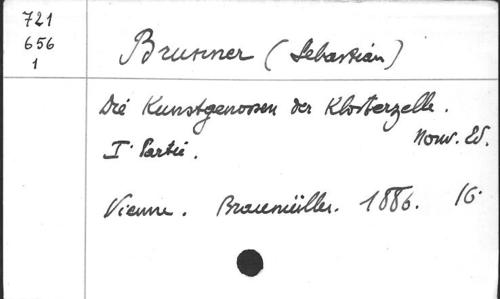 721
656
1
Brunner (Sebastian)
Die Kunstgenossen der Klosterzelle.
I. Partie. Nouv. Ed.
Vienne. Braumüller. 1886. 16.